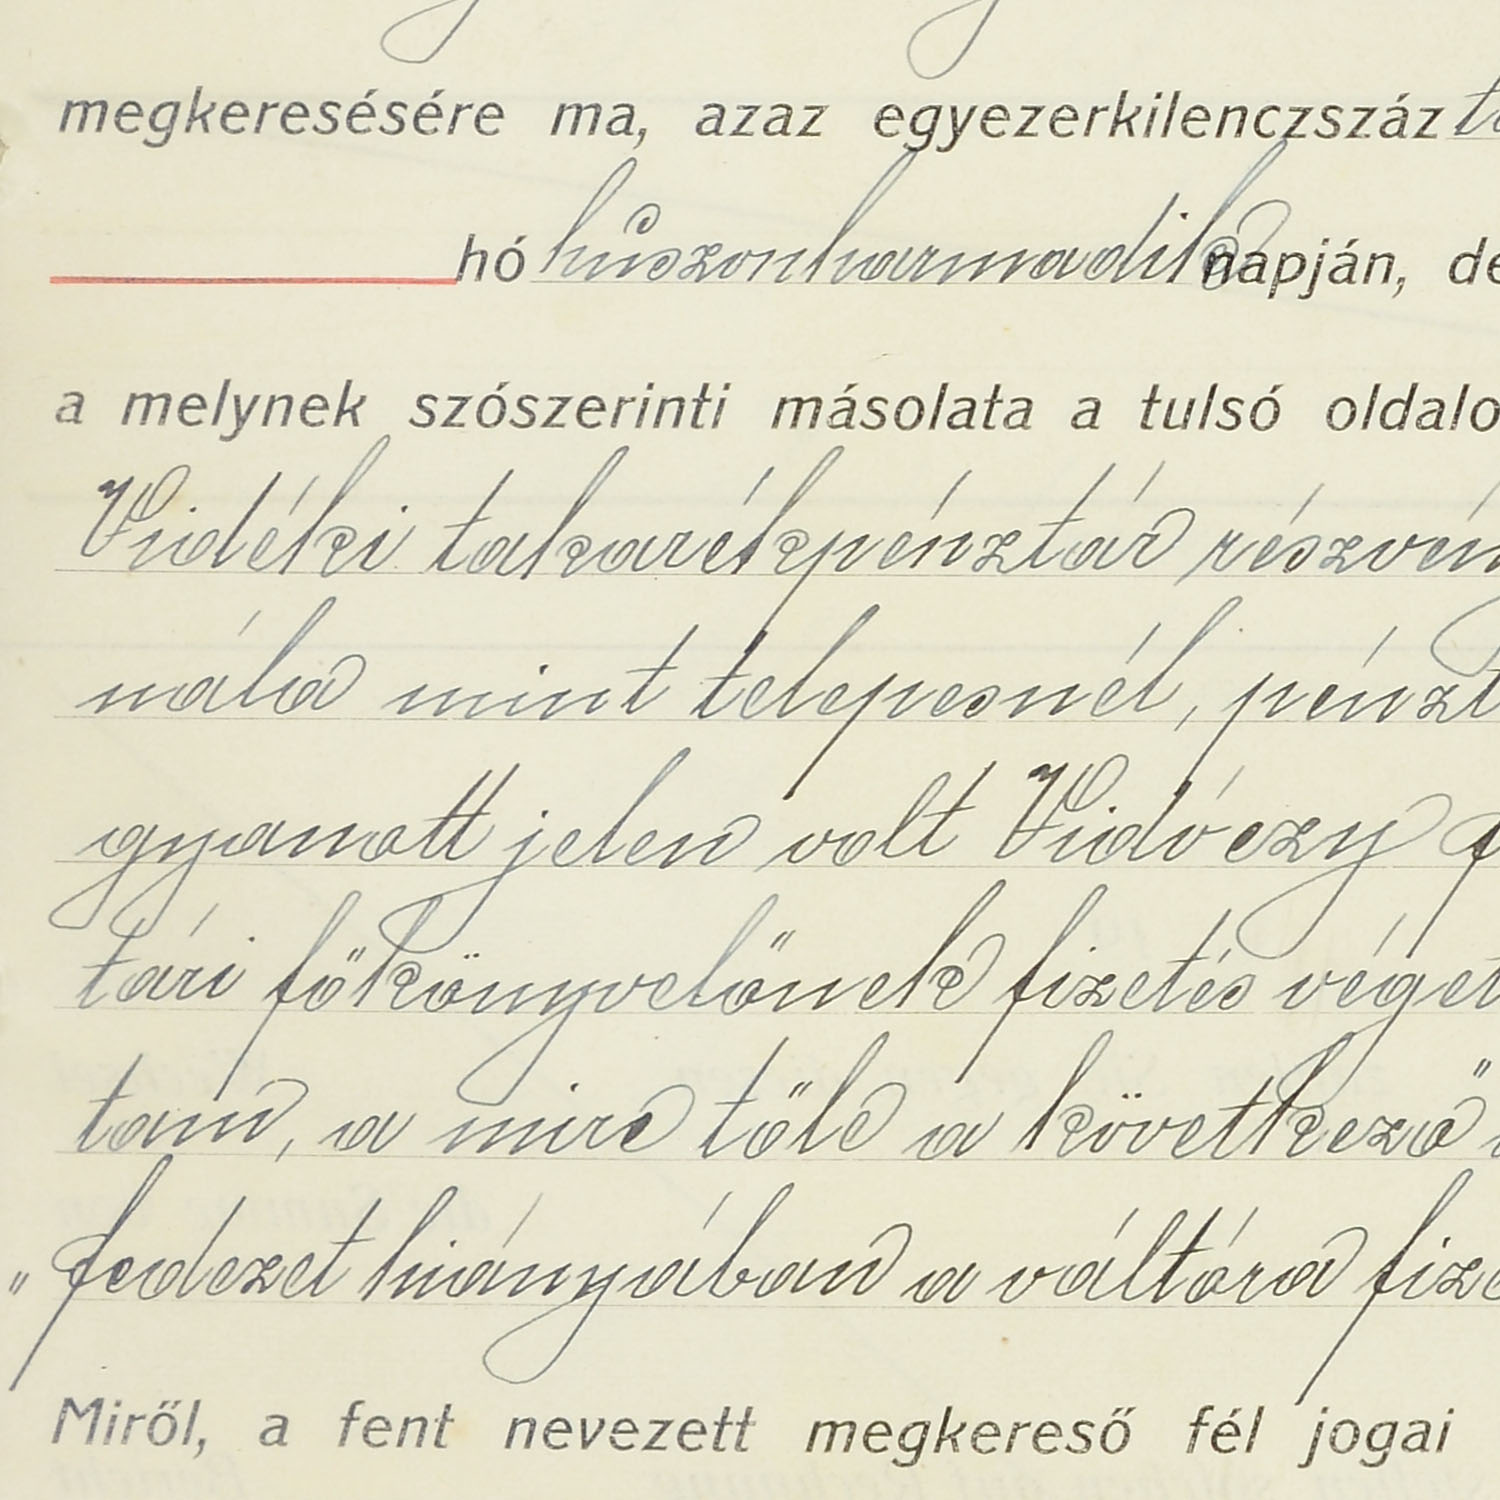 megkeresésére ma, azaz egyezerkilenczszáz
hó húszonharmadik napján, de
a melynek szószerinti másolata a tulsó oldalo
Vidéki takarékpénztár részvén
nála mint telepesnél, pénzt
gyanott jelen volt Vidóczy
tári főkönyvelőnek fizetés végett
tam, a mire tőle a következő
„fedezet hiányában a váltóra fize
Miről, a fent nevezett megkereső fél jogai